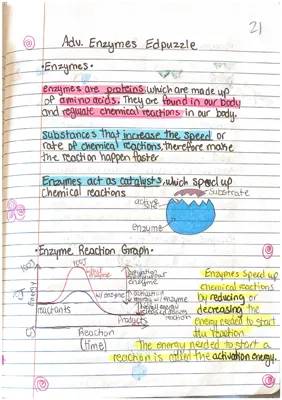 21
Adv. Enzymes Edpuzzle
•Enzymes•
enzymes are proteins, which are made up
of amino acids. They are found in our body
and regulate chemical reactions in our body.
Substances that increase the speed or
rate of chemical reactions, therefore make
the reaction happen faster
Enzymes act as catalysts, which speed up
chemical reactions
substrate
active
site
enzyme
•Enzyme Reaction Graph•
Energy
w/ enzyme
reactants
Products
Reaction
(time)
Enzymes speed up
chemical reactions
by reducing or
decreasing the
energy needed to start
the reaction
The energy needed to start
a reaction is called the activation energy.